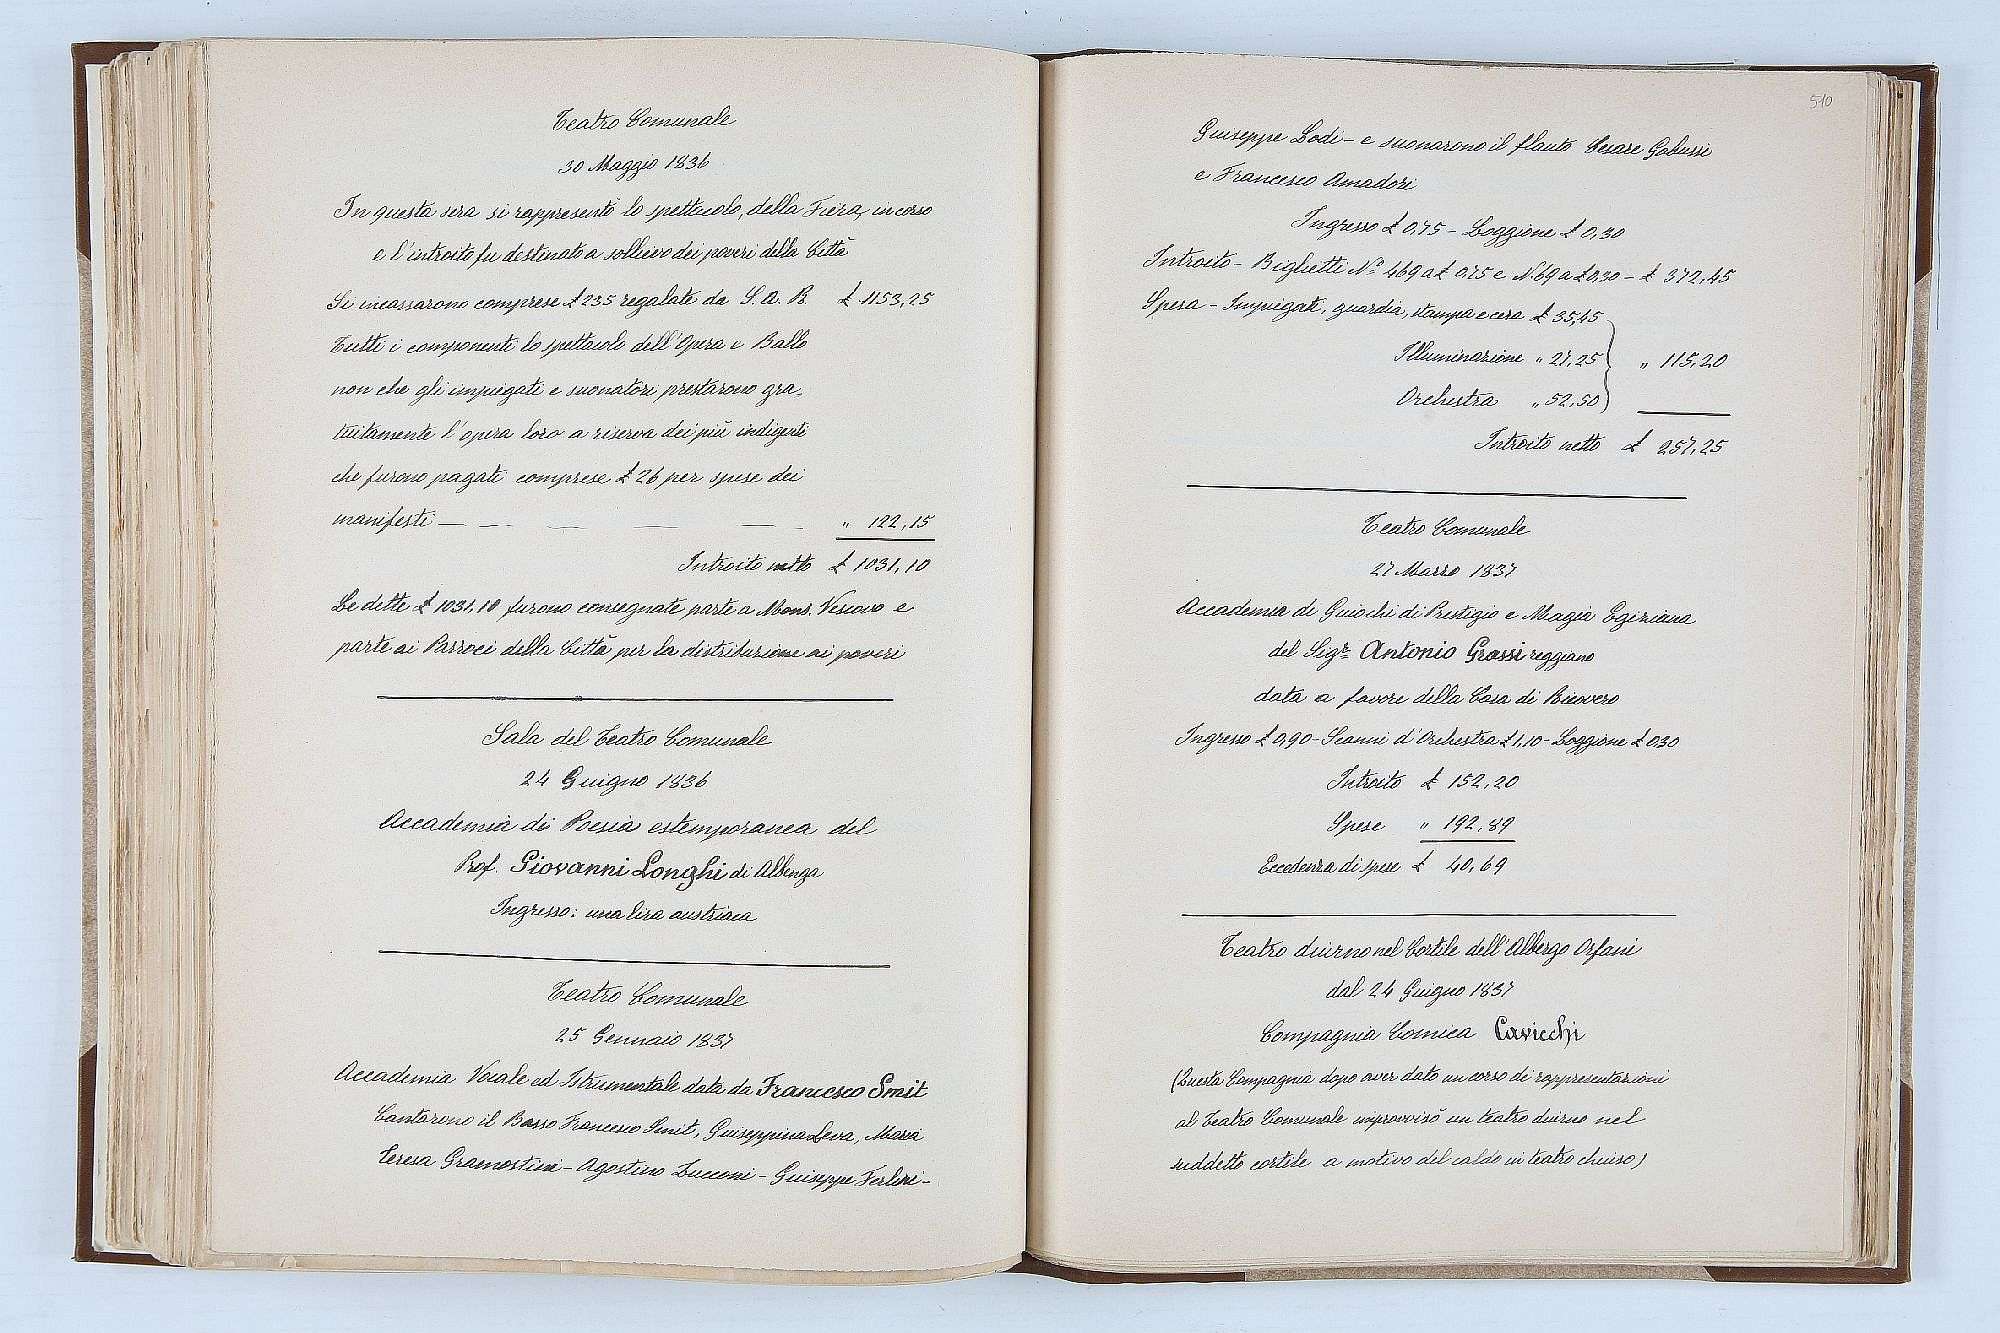 Teatro Comunale
30 Maggio 1836
In questa sera si rappresentò lo spettacolo, della Fiera, in corso
e l'introito fu destinato a sollievo dei poveri della Città
Si incassarono comprese £ 235 regalate da S. A. R. £ 1153,25
Tutti i componenti lo spettacolo dell'Opera e Ballo
non che gli impiegati e suonatori prestarono gra-
tuitamente l'opera loro a riserva dei più indigenti
che furono pagati comprese £ 26 per spese dei
manifesti — — — — — — " 122,15
Introito netto £ 1031,10
Le dette £ 1031,10 furono consegnate parte a Mons. Vescovo e
parte ai Parroci della Città per la distribuzione ai poveri
Sala del Teatro Comunale
24 Giugno 1836
Accademia di Poesia estemporanea del
Prof. Giovanni Longhi di Albenga
Ingresso: una lira austriaca
Teatro Comunale
25 Gennaio 1837
Accademia Vocale ed Istrumentale data da Francesco Smit
Cantarono il Basso Francesco Smit, Giuseppina Leva, Maria
Teresa Gramostini - Agostino Zucconi - Giuseppe Ferlini -
510
Giuseppe Lodi - e suonarono il flauto Cesare Gabussi
e Francesco Amadori
Ingresso £ 0,75 - Loggione £ 0,30
Introito - Biglietti Nº 469 a £ 0,75 e N 69 a £ 0,30 - £ 372,45
Spesa - Impiegati, guardia, stampa e cera £ 35,45
Illuminazione " 27,25 " 115,20
Orchestra " 52,50
Introito netto £ 257,25
Teatro Comunale
27 Marzo 1837
Accademia di Giuochi di Prestigio e Magia Egiziana
del Sigr. Antonio Grassi reggiano
data a favore della Casa di Ricovero
Ingresso £ 0,90 - Scanni d'Orchestra £ 1,10 - Loggione £ 0,30
Introito £ 152,20
Spese " 192,89
Eccedenza di spese £ 40,69
Teatro diurno nel Cortile dell'Albergo Orfani
dal 24 Giugno 1837
Compagnia Comica Cavicchi
(Questa Compagnia dopo aver dato un corso di rappresentazioni
al Teatro Comunale improvvisò un teatro diurno nel
suddetto cortile a motivo del caldo in teatro chiuso)